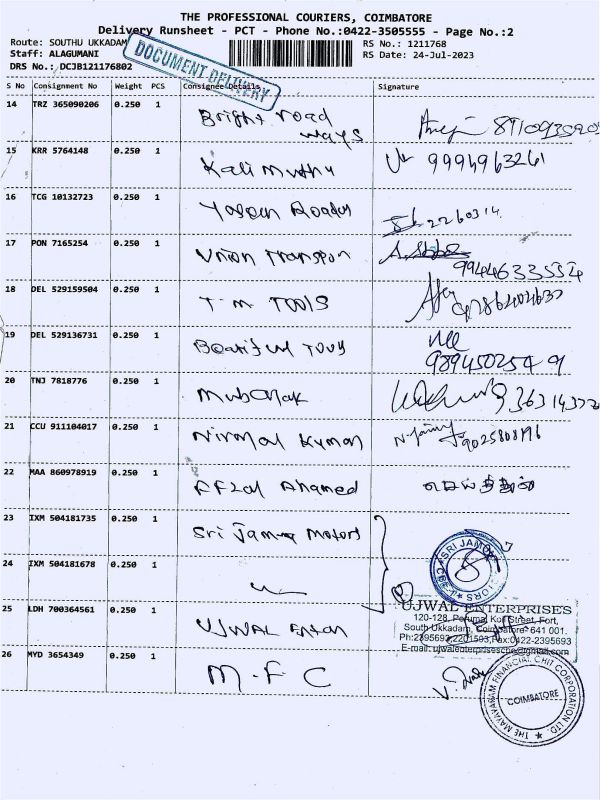 THE PROFESSIONAL COURIERS, COIMBATORE
Delivery Runsheet - PCT - Phone No.:0422-3505555 - Page No.:2
Route: SOUTHU UKKADAM
RS No.: 1211768
Staff: ALAGUMANI
RS Date: 24-Jul-2023
DRS No.: DCJB121176802
DOCUMENT DELIVERY
S No Consignment No Weight PCS Consignee Details Signature
14 TRZ 365090206 0.250 1 Bright road
ways
15 KRR 5764148 0.250 1 Kali Muthu 9994963261
16 TCG 10132723 0.250 1 2260314
17 PON 7165254 0.250 1 Union Transpon
9944633534
18 DEL 529159504 0.250 1 T-M TOOLS
19 DEL 529136731 0.250 1
9894502549
20 TNJ 7818776 0.250 1 Mubarak
21 CCU 911104017 0.250 1 Nirmal Kumar
22 MAA 860978919 0.250 1 Afzal Ahamed
23 IXM 504181735 0.250 1 Sri Jamna Motors
SRI JAMNA MOTORS
24 IXM 504181678 0.250 1
25 LDH 700364561 0.250 1 UJWAL
UJWAL ENTERPRISES
120-128, Perumal Koil Street, Fort,
South Ukkadam, Coimbatore-641 001.
Ph:2395692,2201593,Fax:0422-2395693
E-mail: ujwalenterprisescbe@gmail.com
26 MYD 3654349 0.250 1 M.F C
THE MAYAVARAM FINANCIAL CHIT CORPORATION LTD.
COIMBATORE